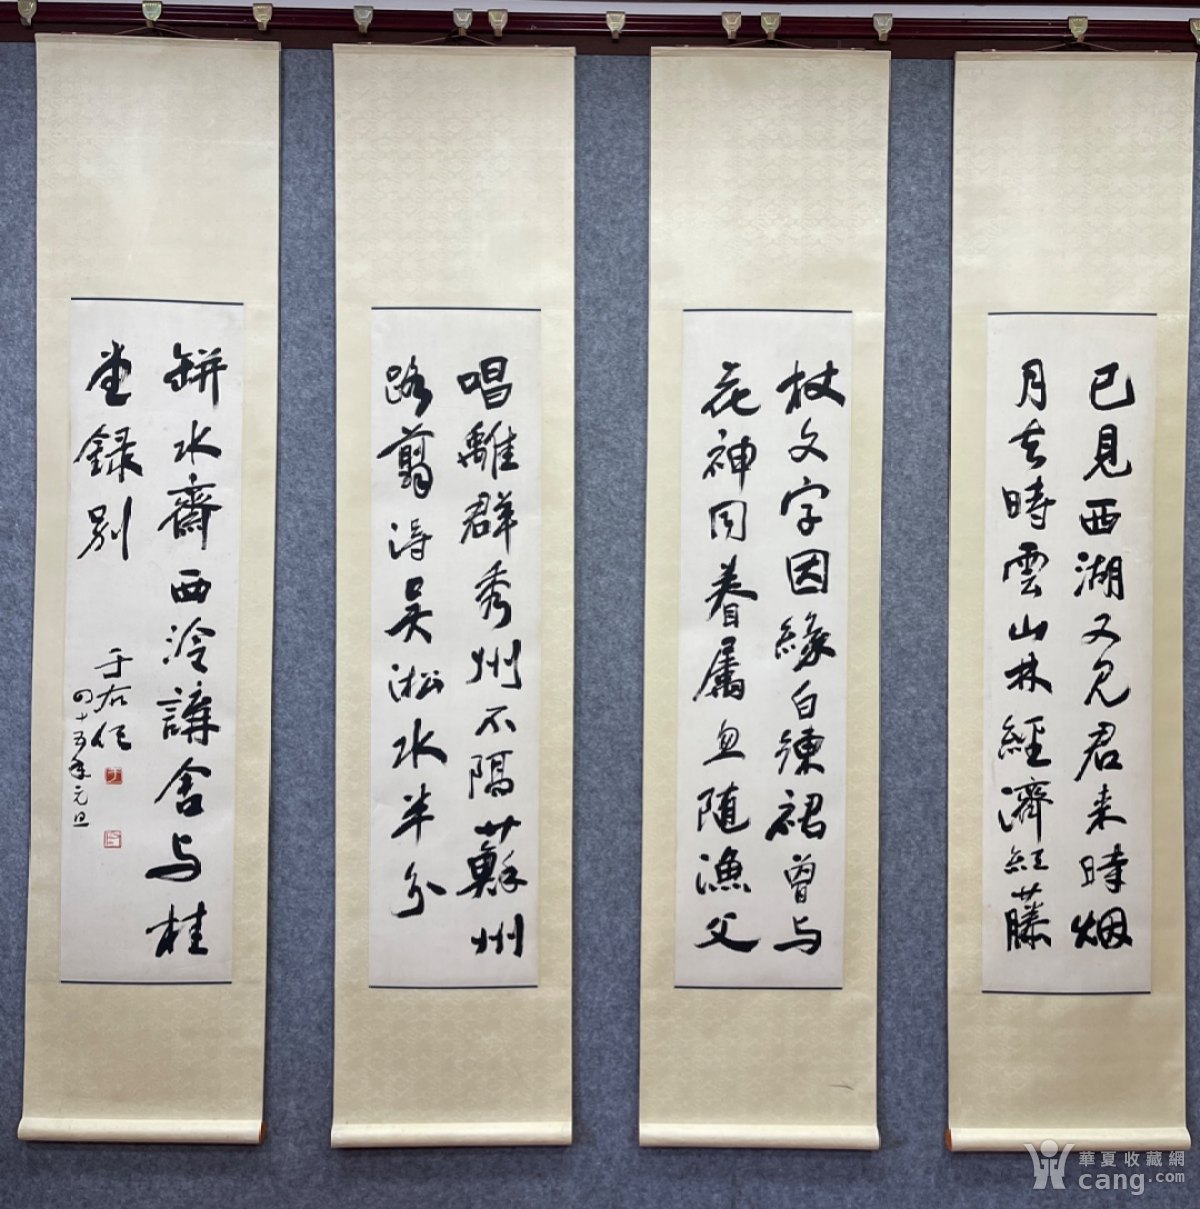 已見西湖又見君来時烟
月去時雲山林經濟紅藤
杖文字因緣白練裙曾与
花神同眷屬忽随漁父
唱離群秀州不隔蘇州
路翦淂吴淞水半分
缾水齋西泠講舍与桂
堂録别
于右任
四十五年元旦
華夏收藏網
cang.com